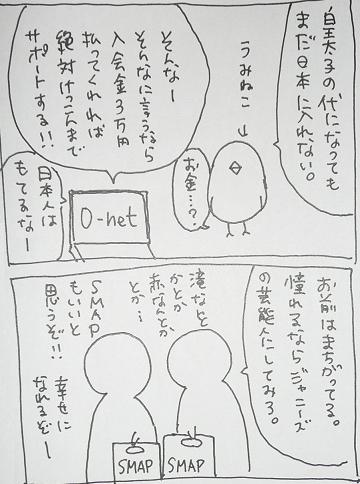 白王太子の代になっても
まだ日本に入れない。
うみねこ
お金…?
そんなー
そんなに言うなら
入会金3万円
払ってくれれば
絶対けっこんまで
サポートする!!
O-net
日本人は
もてるなー
お前はまちがってる。
憧れるならジャニーズ
の芸能人にしてみろ。
滝なんとか
かとか
赤なんとか
とか…
SMAP
もいいと
思うぞ!!
幸せに
なれるぞー
SMAP
SMAP